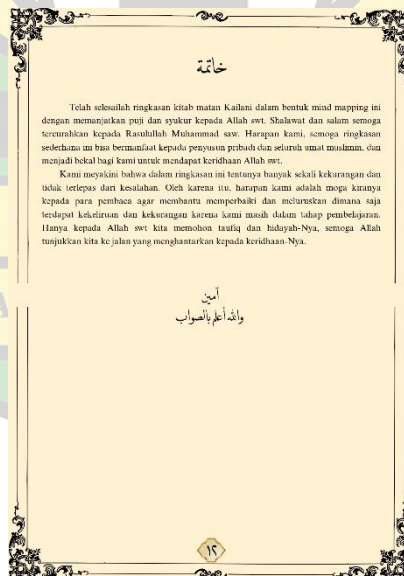 خاتمة
Telah selesailah ringkasan kitab matan Kailani dalam bentuk mind mapping ini
dengan memanjatkan puji dan syukur kepada Allah swt. Shalawat dan salam semoga
tercurahkan kepada Rasulullah Muhammad saw. Harapan kami, semoga ringkasan
sederhana ini bisa bermanfaat kepada penyusun pribadi dan seluruh umat muslimin, dan
menjadi bekal bagi kami untuk mendapat keridhaan Allah swt.
Kami meyakini bahwa dalam ringkasan ini tentunya banyak sekali kekurangan dan
tidak terlepas dari kesalahan. Oleh karena itu, harapan kami adalah moga kiranya
kepada para pembaca agar membantu memperbaiki dan meluruskan dimana saja
terdapat kekeliruan dan kekurangan karena kami masih dalam tahap pembelajaran.
Hanya kepada Allah swt kita memohon taufiq dan hidayah-Nya, semoga Allah
tunjukkan kita ke jalan yang menghantarkan kepada keridhaan-Nya.
آمين
والله أعلم بالصواب
١٢